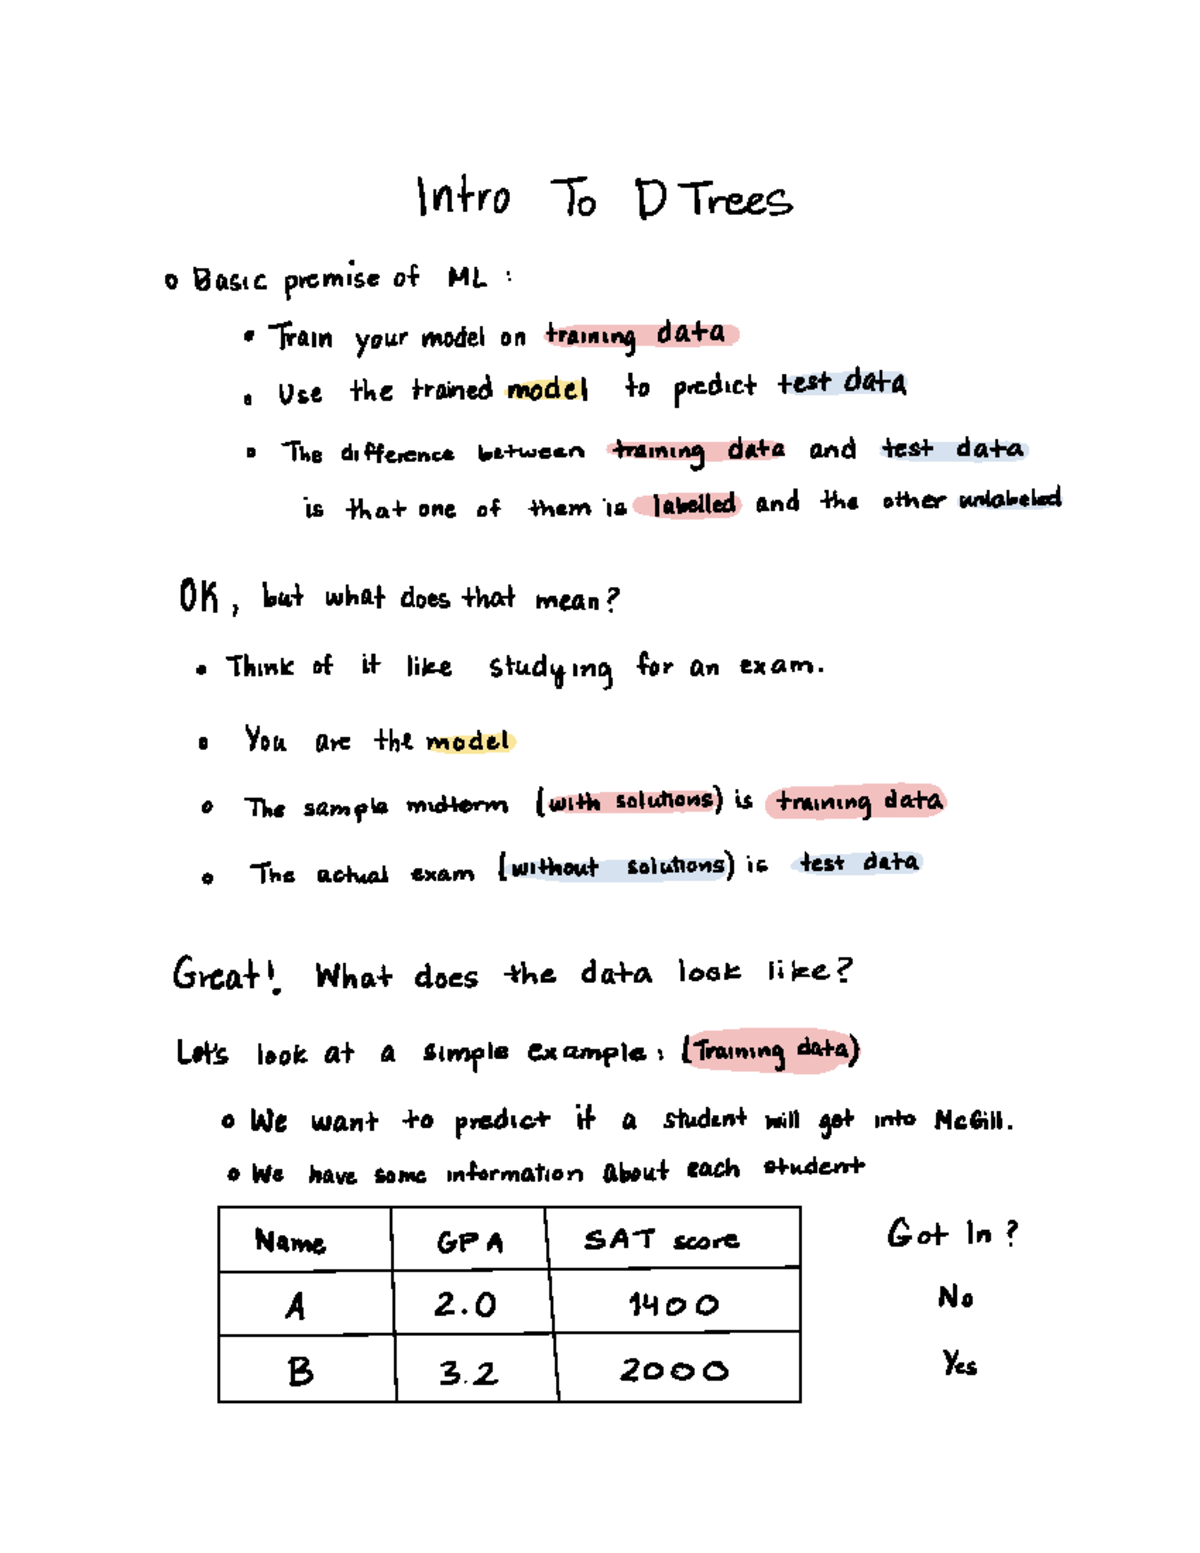 Intro To D Trees
Basic premise of ML :
Train your model on training data
Use the trained model to predict test data
The difference between training data and test data
is that one of them is labelled and the other unlabeled
OK, but what does that mean?
Think of it like studying for an exam.
You are the model
The sample midterm (with solutions) is training data
The actual exam (without solutions) is test data
Great! What does the data look like?
Let's look at a simple example: (Training data)
We want to predict if a student will get into McGill.
We have some information about each student
Name GPA SAT score Got In ?
A 2.0 1400 No
B 3.2 2000 Yes